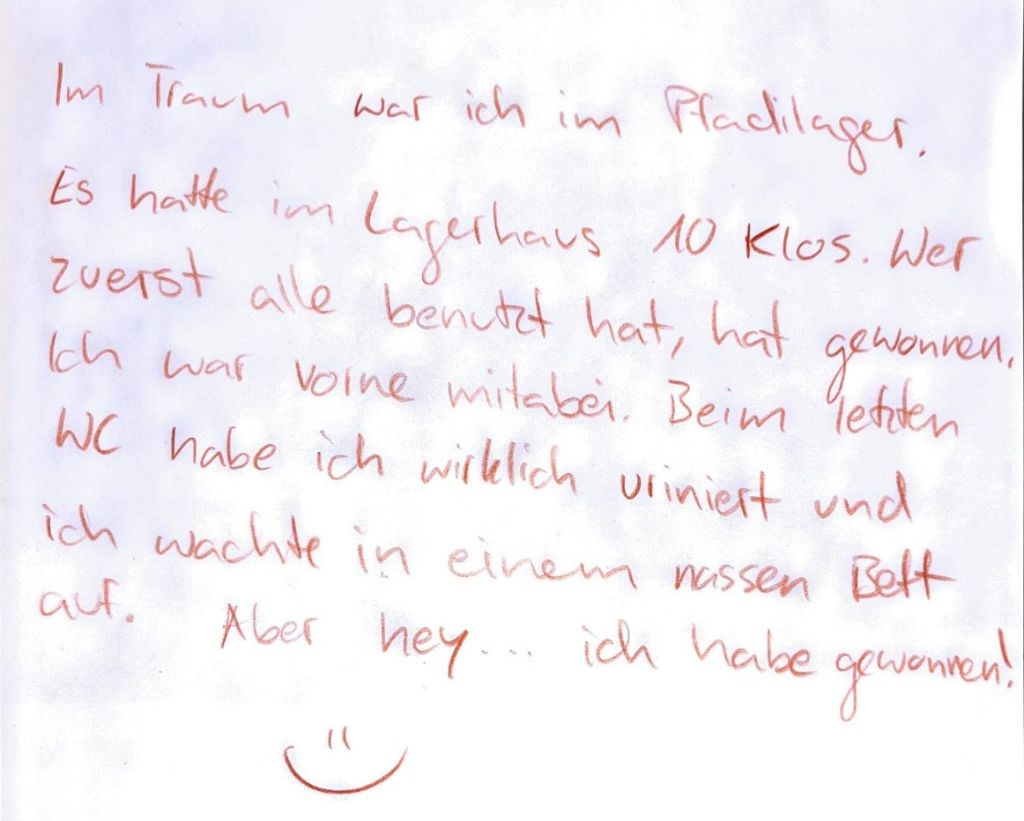 Im Traum war ich im Pfadilager.
Es hatte im Lagerhaus 10 Klos. Wer
zuerst alle benutzt hat, hat gewonnen.
Ich war vorne mitabei. Beim letzten
WC habe ich wirklich uriniert und
ich wachte in einem nassen Bett
auf. Aber hey... ich habe gewonnen!